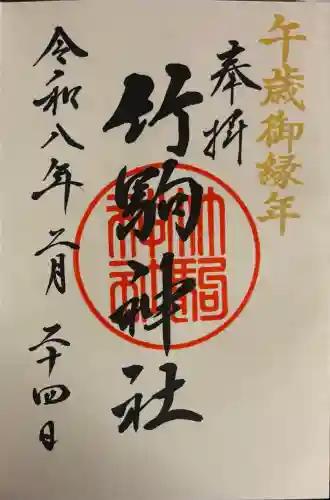 午歳御縁年
奉拝
竹駒神社
令和八年二月二十四日
竹駒
神社